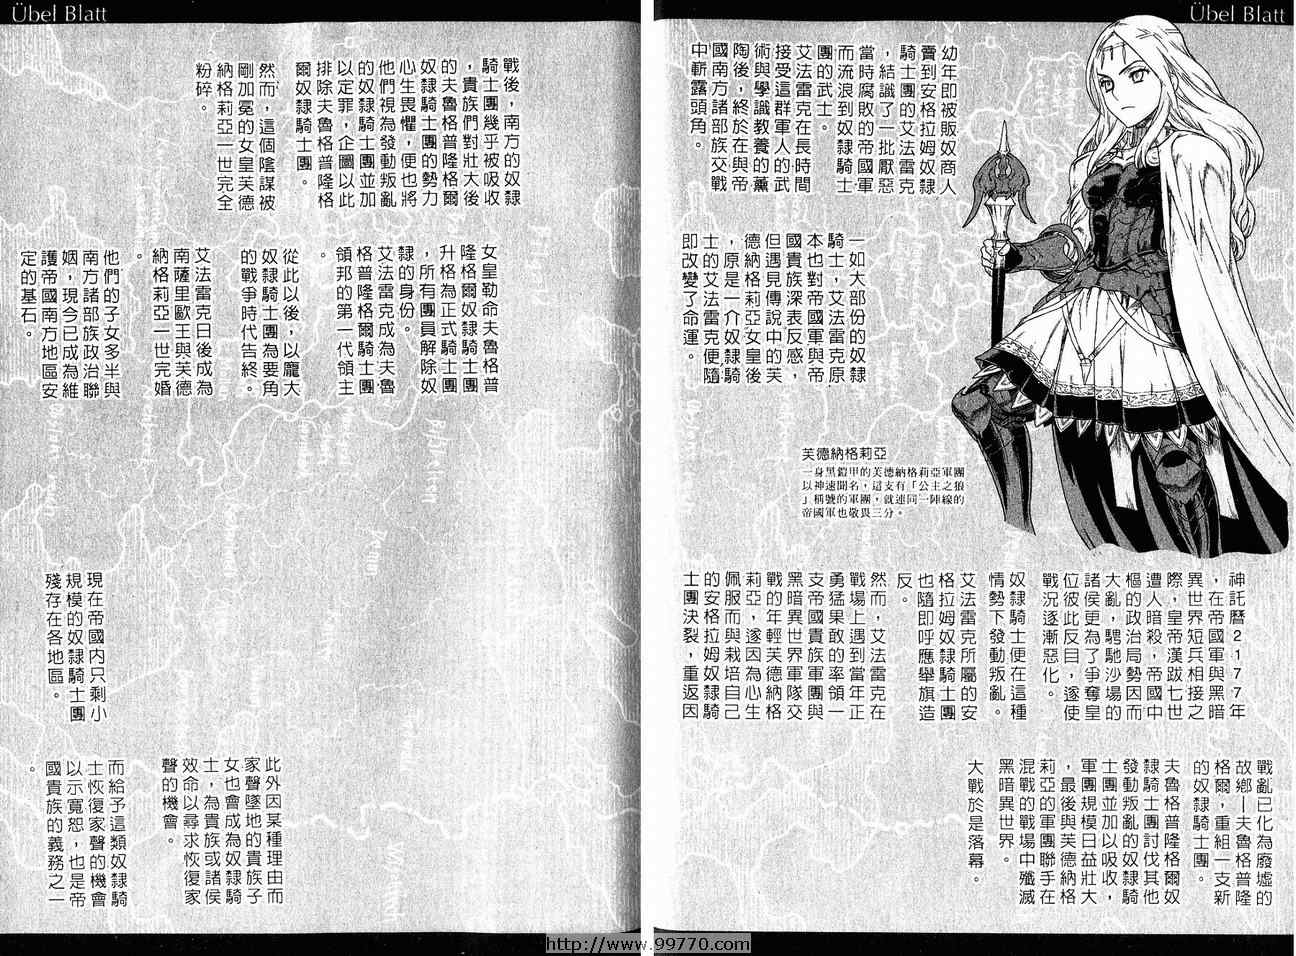 Übel Blatt
Übel Blatt
幼年即被販奴商人
賣到安格拉姆奴隸
騎士團的艾法雷克
，結識了一批厭惡
當時腐敗的帝國軍
而流浪到奴隸騎士
團的武士。
艾法雷克在長時間
接受這群軍人的武
術與學識教養的薰
陶後，終於在與帝
國南方諸部族交戰
中嶄露頭角。
一如大部份的奴隸
騎士，艾法雷克原
本也對帝國軍與帝
國貴族深表反感，
但遇見傳說中的芙
德納格莉亞女皇後
，原是一介奴隸騎
士的艾法雷克便隨
即改變了命運。
芙德納格莉亞
一身黑鎧甲的芙德納格莉亞軍團
以神速聞名，這支有「公主之狼
」稱號的軍團，就連同一陣線的
帝國軍也敬畏三分。
神託曆2177年
，在帝國軍與黑暗
異世界短兵相接之
際，皇帝漢跋七世
遭人暗殺，帝國中
樞的政治局勢因而
大亂，騁馳沙場的
諸侯更為了爭奪皇
位彼此反目，遂使
戰況逐漸惡化。
奴隸騎士便在這種
情勢下發動叛亂。
艾法雷克所屬的安
格拉姆奴隸騎士團
也隨即呼應舉旗造
反。
然而，艾法雷克在
戰場上遇到當年正
勇猛果敢的率領一
支帝國貴族軍團與
黑暗異世界軍隊交
戰的年輕芙德納格
莉亞，遂因為心生
佩服而與栽培自己
的安格拉姆奴隸騎
士團決裂，重返因
戰亂已化為廢墟的
故鄉—夫魯格普隆
格爾，重組一支新
的奴隸騎士團。
夫魯格普隆格爾奴
隸騎士團討伐其他
發動叛亂的奴隸騎
士團並加以吸收，
軍團規模日益壯大
，最後與芙德納格
莉亞的軍團聯手在
混戰的戰場中殲滅
黑暗異世界。
大戰於是落幕。
戰後，南方的奴隸
騎士團幾乎被吸收
，貴族們對壯大後
的夫魯格普隆格爾
奴隸騎士團的勢力
心生畏懼，便也將
他們視為發動叛亂
的奴隸騎士團並加
以定罪，企圖以此
排除夫魯格普隆格
爾奴隸騎士團。
然而，這個陰謀被
剛加冕的女皇芙德
納格莉亞一世完全
粉碎。
女皇勒命夫魯格普
隆格爾奴隸騎士團
升格為正式騎士團
，所有團員解除奴
隸的身份。
艾法雷克成為夫魯
格普隆格爾騎士團
領邦的第一代領主
。
從此以後，以龐大
奴隸騎士團為要角
的戰爭時代告終。
艾法雷克日後成為
南薩里歐王與芙德
納格莉亞一世完婚
。
他們的子女多半與
南方諸部族政治聯
姻，現今已成為維
護帝國南方地區安
定的基石。
現在帝國內只剩小
規模的奴隸騎士團
殘存在各地區。
此外因某種理由而
家聲墜地的貴族子
女也會成為奴隸騎
士，為貴族或諸侯
效命以尋求恢復家
聲的機會。
而給予這類奴隸騎
士恢復家聲的機會
以示寬恕，也是帝
國貴族的義務之一
。
http://www.99770.com